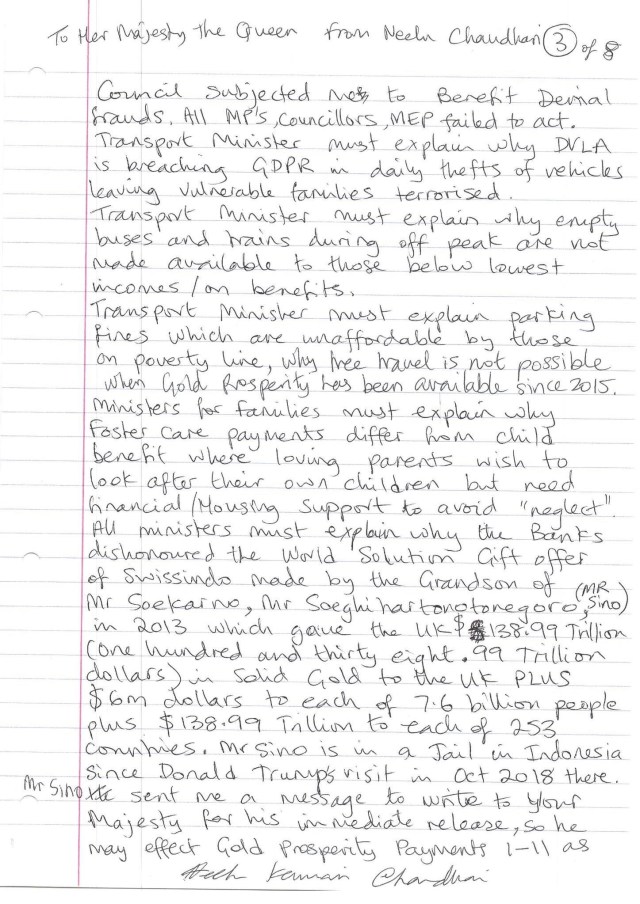 To Her Majesty the Queen from Neelu Chaudhari 3 of 8
Council subjected me to Benefit Denial
frauds. All MP's, Councillors, MEP failed to act.
Transport Minister must explain why DVLA
is breaching GDPR in daily thefts of vehicles
leaving vulnerable families terrorised.
Transport Minister must explain why empty
buses and trains during off peak are not
made available to those below lowest
incomes / on benefits.
Transport Minister must explain parking
fines which are unaffordable by those
on poverty line, why free travel is not possible
when Gold Prosperity has been available since 2015.
Ministers for families must explain why
Foster Care payments differ from child
benefit where loving parents wish to
look after their own children but need
financial / Housing support to avoid "neglect".
All ministers must explain why the Banks
dishonoured the World Solution Gift offer
of Swissindo made by the Grandson of
Mr Soekarno, Mr Soeghihartonotonegoro, (MR Sino)
in 2013 which gave the UK $ 138.99 Trillion
(one hundred and thirty eight .99 Trillion
dollars) in Solid Gold to the UK PLUS
$6m dollars to each of 7.6 billion people
plus $138.99 Trillion to each of 253
countries. Mr Sino is in a Jail in Indonesia
since Donald Trump's visit in Oct 2018 there.
Mr Sino sent me a message to write to Your
Majesty for his immediate release, so he
may effect Gold Prosperity Payments 1-11 as
Kumari Chaudhari